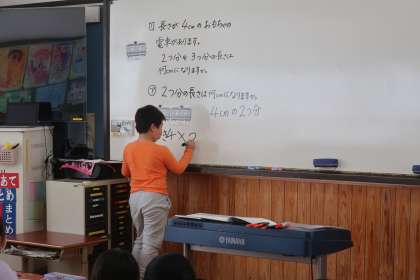 ① 長さが4cmのおもちゃの
電車があります。
2つ分や3つ分の長さは
何cmになりますか。
⑦ 2つ分の長さは何cmになりますか。
4cmの2つ分
4×2
あて
め
まとめ
YAMAHA